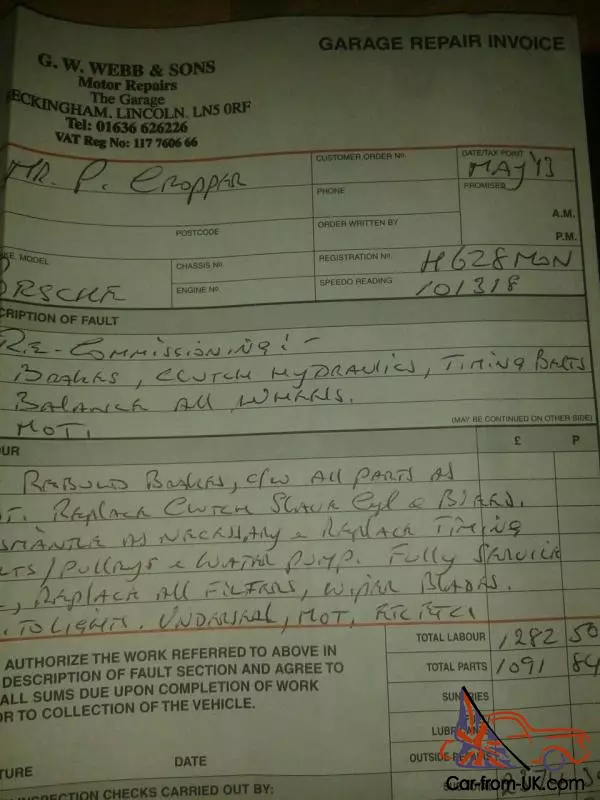 GARAGE REPAIR INVOICE
G. W. WEBB & SONS
Motor Repairs
The Garage
ECKINGHAM, LINCOLN. LN5 0RF
Tel: 01636 626226
VAT Reg No: 117 7606 66
MR. P. CROPPER
CUSTOMER ORDER No.
DATE/TAX POINT
MAY '13
PHONE
PROMISED
A.M.
POSTCODE
ORDER WRITTEN BY
P.M.
KE, MODEL
CHASSIS No.
REGISTRATION No.
H628 MON
RSCHE
ENGINE No.
SPEEDO READING
101318
CRIPTION OF FAULT
RE-COMMISSIONING:-
BRAKES, CLUTCH HYDRAULICS, TIMING BELTS
BALANCE ALL WHEELS.
MOT.
(MAY BE CONTINUED ON OTHER SIDE)
OUR
£ P
REBUILD BRAKES, C/W ALL PARTS AS
T. REPLACE CLUTCH SLAVE CYL & BLEED.
SMANTLE AS NECESSARY & REPLACE TIMING
LTS/PULLEYS & WATER PUMP. FULLY SERVICE
REPLACE ALL FILTERS, WIPER BLADES.
TO LIGHTS. UNDERSEAL, MOT, ETC ETC
TOTAL LABOUR 1282 50
AUTHORIZE THE WORK REFERRED TO ABOVE IN
DESCRIPTION OF FAULT SECTION AND AGREE TO
ALL SUMS DUE UPON COMPLETION OF WORK
OR TO COLLECTION OF THE VEHICLE.
TOTAL PARTS 1091 84
SUNDRIES
LUBRICAN
OUTSIDE REPAIRS
TURE
DATE
INSPECTION CHECKS CARRIED OUT BY:
Car-from-UK.com